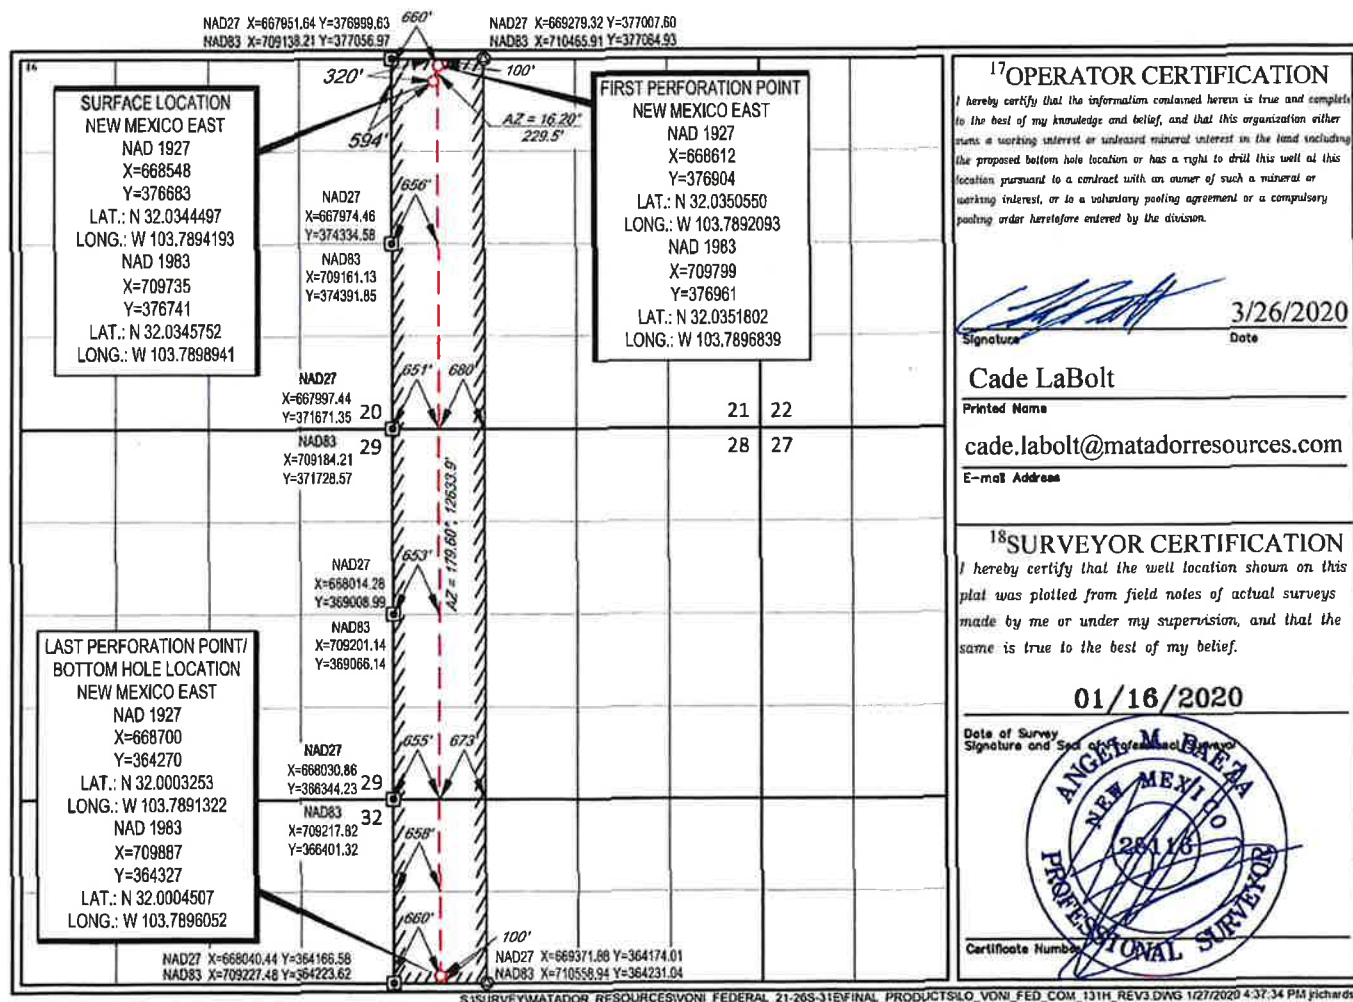 NAD27 X=667951.64 Y=376999.63
NAD83 X=709138.21 Y=377056.97
660'
NAD27 X=669279.32 Y=377007.60
NAD83 X=710465.91 Y=377064.93
16
320'
100'
594'
AZ = 16.20°
229.5'
SURFACE LOCATION
NEW MEXICO EAST
NAD 1927
X=668548
Y=376683
LAT.: N 32.0344497
LONG.: W 103.7894193
NAD 1983
X=709735
Y=376741
LAT.: N 32.0345752
LONG.: W 103.7898941
FIRST PERFORATION POINT
NEW MEXICO EAST
NAD 1927
X=668612
Y=376904
LAT.: N 32.0350550
LONG.: W 103.7892093
NAD 1983
X=709799
Y=376961
LAT.: N 32.0351802
LONG.: W 103.7896839
656'
NAD27
X=667974.46
Y=374334.58
NAD83
X=709161.13
Y=374391.85
651'
680'
NAD27
X=667997.44
Y=371671.35
20
21
22
NAD83
X=709184.21
Y=371728.57
29
28
27
AZ = 179.60°, 12633.9'
653'
NAD27
X=668014.28
Y=369008.99
NAD83
X=709201.14
Y=369066.14
LAST PERFORATION POINT/
BOTTOM HOLE LOCATION
NEW MEXICO EAST
NAD 1927
X=668700
Y=364270
LAT.: N 32.0003253
LONG.: W 103.7891322
NAD 1983
X=709887
Y=364327
LAT.: N 32.0004507
LONG.: W 103.7896052
655'
673'
NAD27
X=668030.86
Y=366344.23
29
NAD83
X=709217.82
Y=366401.32
32
658'
660'
100'
NAD27 X=668040.44 Y=364166.58
NAD83 X=709227.48 Y=364223.62
NAD27 X=669371.88 Y=364174.01
NAD83 X=710558.94 Y=364231.04
17OPERATOR CERTIFICATION
I hereby certify that the information contained herein is true and complete
to the best of my knowledge and belief, and that this organization either
owns a working interest or unleased mineral interest in the land including
the proposed bottom hole location or has a right to drill this well at this
location pursuant to a contract with an owner of such a mineral or
working interest, or to a voluntary pooling agreement or a compulsory
pooling order heretofore entered by the division.
3/26/2020
Signature
Date
Cade LaBolt
Printed Name
cade.labolt@matadorresources.com
E-mail Address
18SURVEYOR CERTIFICATION
I hereby certify that the well location shown on this
plat was plotted from field notes of actual surveys
made by me or under my supervision, and that the
same is true to the best of my belief.
01/16/2020
Date of Survey
Signature and Seal of Professional Surveyor
ANGEL M. BAEZA
NEW MEXICO
25116
PROFESSIONAL SURVEYOR
Certificate Number
S:\SURVEY\MATADOR_RESOURCES\VONI_FEDERAL_21-26S-31E\FINAL_PRODUCTS\LO_VONI_FED_COM_131H_REV3.DWG 1/27/2020 4:37:34 PM